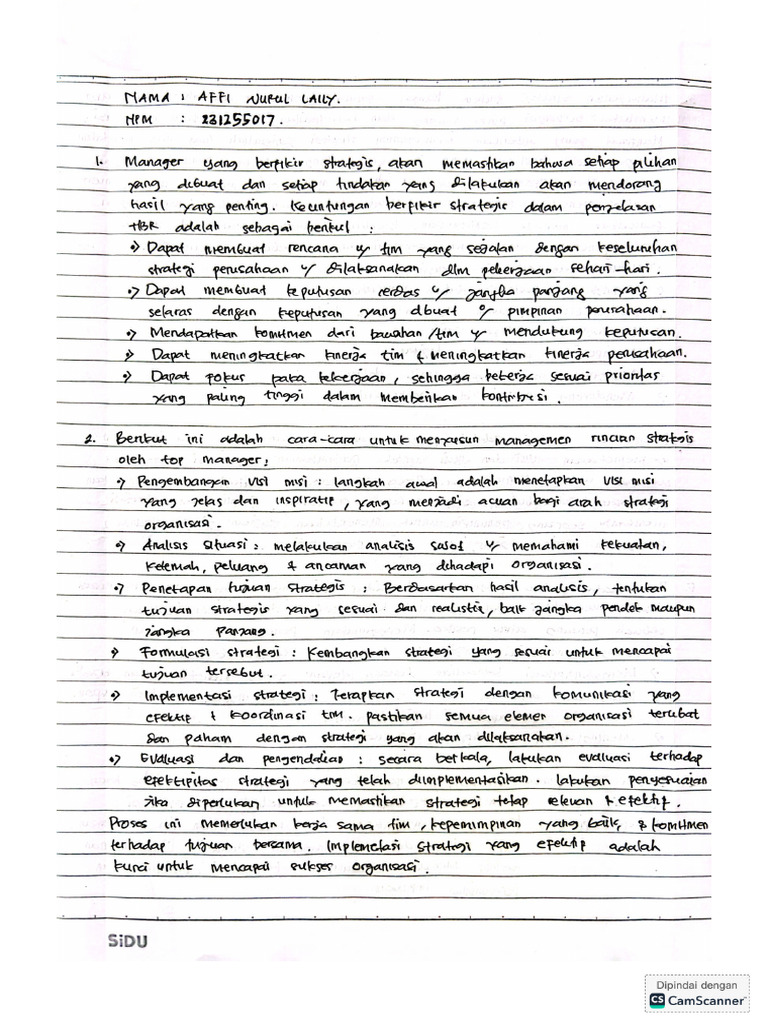 NAMA : AFFI NURUL LAILY.
NPM : 231255017.
1. Manager yang berfikir strategis, akan memastikan bahwa setiap pilihan
yang dibuat dan setiap tindakan yang dilakukan akan mendorong
hasil yang penting. Keuntungan berfikir strategis dalam penjelasan
HBR adalah sebagai berikut :
•) Dapat membuat rencana u/ tim yang sejalan dengan keseluruhan
strategi perusahaan u/ dilaksanakan dlm pekerjaan sehari-hari.
•) Dapat membuat keputusan cerdas u/ jangka panjang yang
selaras dengan keputusan yang dbuat o/ pimpinan perusahaan.
•) Mendapatkan komitmen dari bawahan/tim u/ mendukung keputusan.
•) Dapat meningkatkan kinerja tim & meningkatkan kinerja perusahaan.
•) Dapat fokus paka kekerjaan, sehingga bekerja sesuai prioritas
yang paling tinggi dalam memberikan kontribusi.
2. Berikut ini adalah cara-cara untuk menyusun managemen rincian strategis
oleh top manager :
•) Pengembangan visi misi : langkah awal adalah menetapkan visi misi
yang jelas dan inspiratif, yang menjadi acuan bagi arah strategi
organisasi.
•) Analisis situasi : melakukan analisis u/ memahami kekuatan,
kelemah, peluang & ancaman yang dihadapi organisasi.
•) Penetapan tujuan strategis : Berdasarkan hasil analisis, tentukan
tujuan strategis yang sesuai dan realistis, baik jangka pendek maupun
jangka panjang.
•) Formulasi strategi : Kembangkan strategi yang sesuai untuk mencapai
tujuan tersebut.
•) Implementasi strategi : Terapkan strategi dengan komunikasi yang
efektif & koordinasi tim. pastikan semua elemen organisasi terlibat
dan paham dengan strategi yang akan dilaksanakan.
•) Evaluasi dan pengendalian : secara berkala, lakukan evaluasi terhadap
efektipitas strategi yang telah diimplementasikan. lakukan penyesuaian
jika diperlukan untuk memastikan strategi tetap relevan & efektif.
Proses ini memerlukan kerja sama tim, kepemimpinan yang baik, & komitmen
terhadap tujuan bersama. Implemetasi strategi yang efektif adalah
kunci untuk mencapai sukses organisasi.
SiDU
Dipindai dengan
CS CamScanner